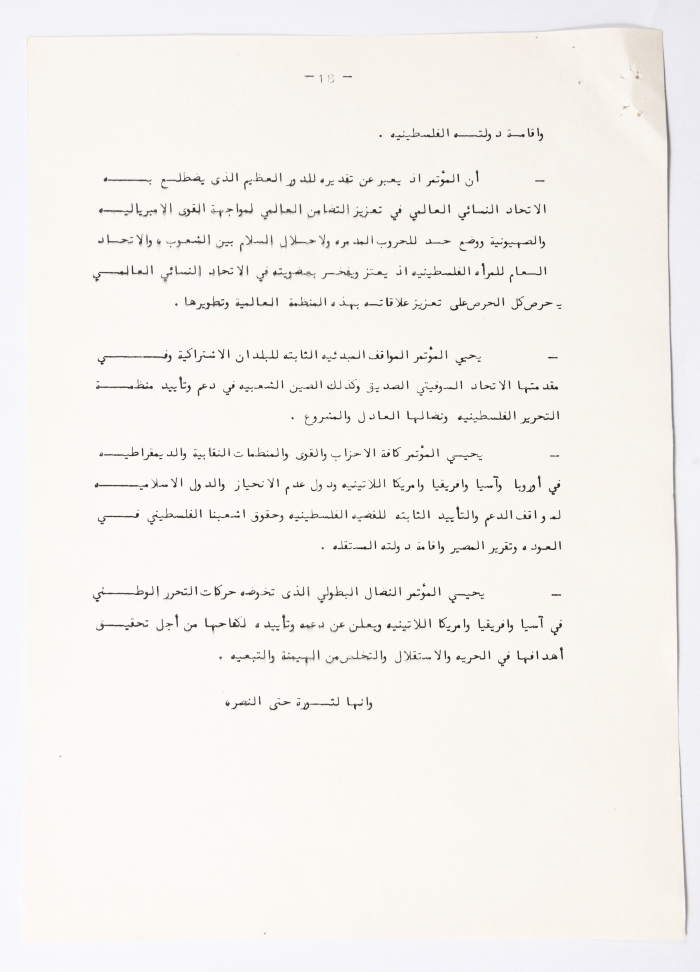 - 18 -
واقامة دولتـــه الفلسطينيه .
— أن المؤتمر اذ يعبر عن تقديره للدور العظيم الذى يضطلـــع بـــــه
الاتحاد النسائي العالمي في تعزيز التضامن العالمي لمواجهة القوى الامبرياليـــه
والصهيونية ووضع حـــد للحروب المدمره ولاحـلال السلام بين الشعوب ، والاتحـــاد
العـــام للمرأه الفلسطينيه اذ يعتز ويفخـر بعضويته في الاتحاد النسائي العالمـــي
يحرص كل الحرص على تعزيز علاقاتـه بهذه المنظمة العالمية وتطويرها .
— يحيي المؤتمر المواقف المبدئيه الثابته للبلدان الاشتراكية وفـــــــي
مقدمتها الاتحاد السوفيتي الصديق وكذلك الصين الشعبيه في دعم وتأييد منظمـــة
التحرير الفلسطينيه ونضالها العادل والمشروع .
— يحيـي المؤتمر كافة الاحزاب والقوى والمنظمات النقابية والديمقراطيـــه
في أوروبا وآسيا وافريقيا وامريكا اللاتينيه ودول عدم الانحياز والدول الاسلاميـــه
لمواقف الدعم والتأييد الثابته للقضيه الفلسطينيه وحقوق اشعبنا الفلسطيني فـــي
العوده وتقرير المصير واقامة دولته المستقله .
— يحيـي المؤتمر النضال البطولي الذى تخوضه حركات التحرر الوطـــــني
في آسيا وافريقيا وامريكا اللاتينيه ويعلن عن دعمه وتأييده لكفاحها من أجل تحقيـــق
أهدافها في الحريه والاستقلال والتخلص من الهيمنة والتبعيه .
وانها لثـــورة حتى النصره